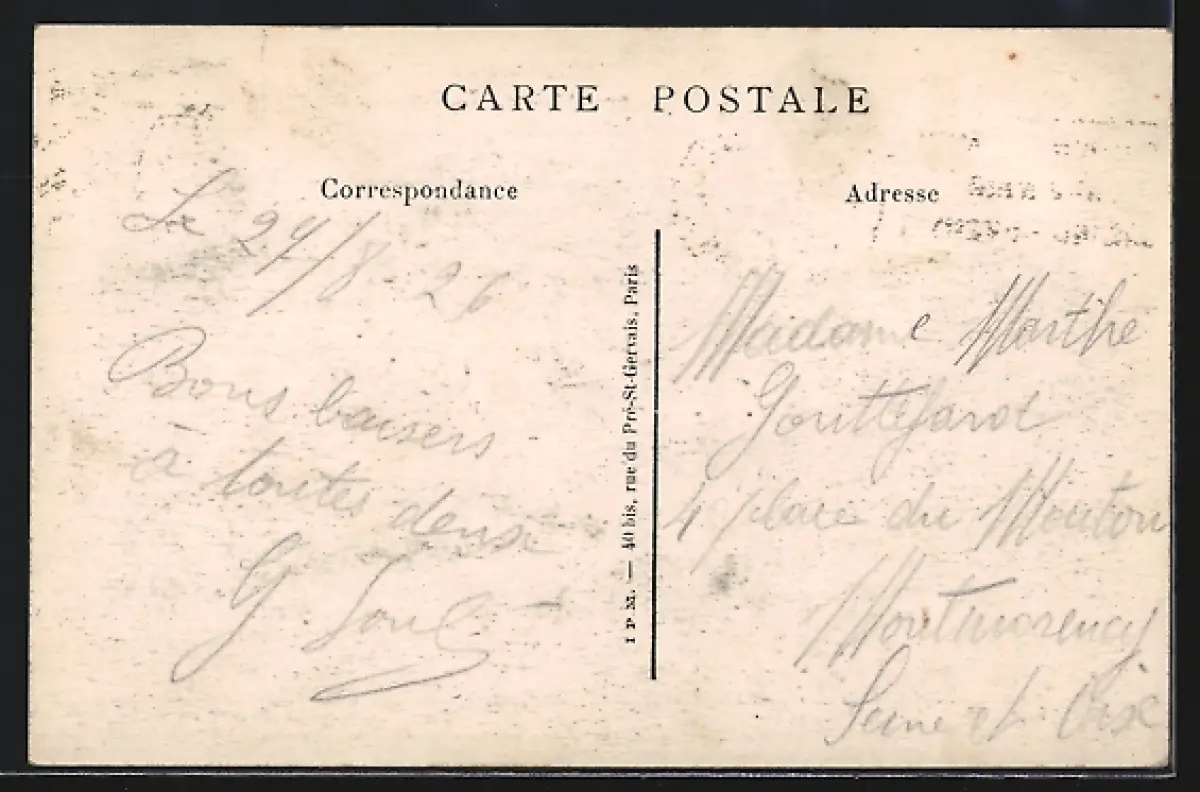 CARTE POSTALE
Correspondance
Le 27/8-26
Bons baisers
à toutes deux
G
I P M. — 40 bis, rue du Pré-St-Gervais, Paris
Adresse
Madame Marthe
4 place du Mouton
Montmorency
Seine et Oise